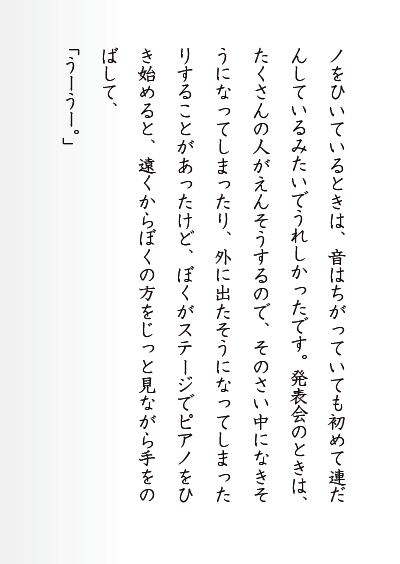 ノをひいているときは、音はちがっていても初めて連だ
んしているみたいでうれしかったです。発表会のときは、
たくさんの人がえんそうするので、そのさい中になきそ
うになってしまったり、外に出たそうになってしまった
りすることがあったけど、ぼくがステージでピアノをひ
き始めると、遠くからぼくの方をじっと見ながら手をの
ばして、
「うーうー。」